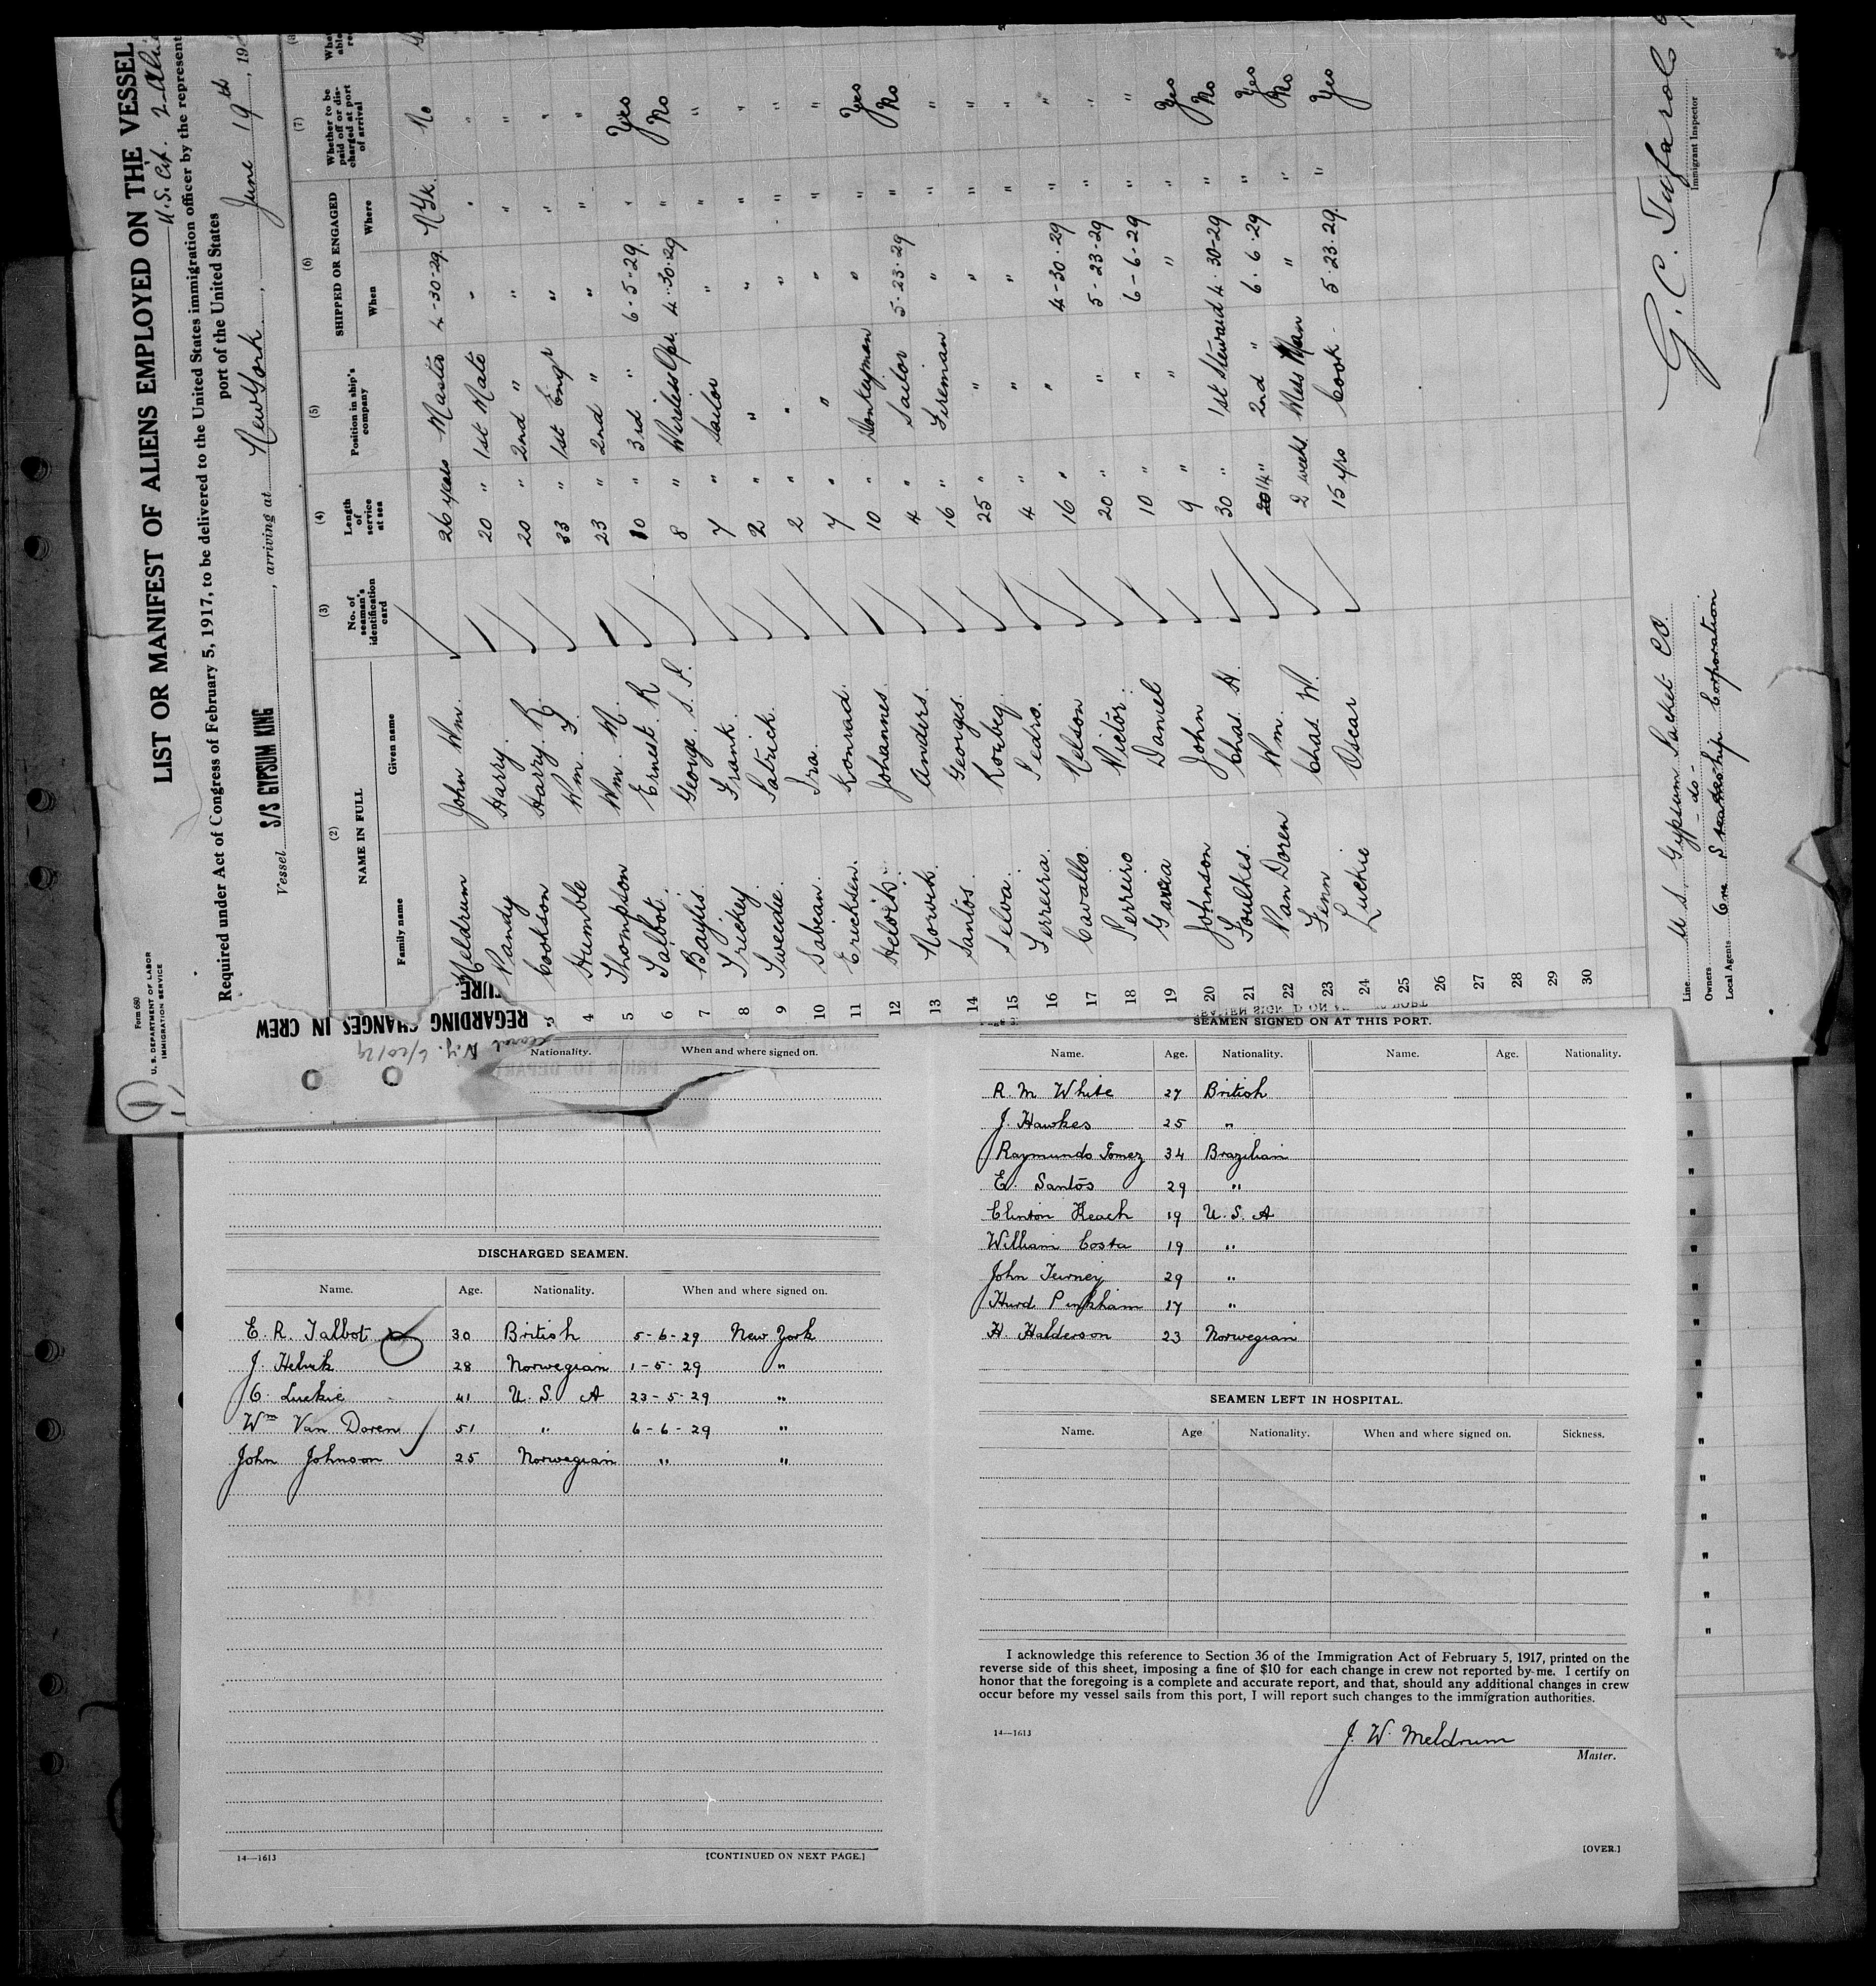 Form 680
U. S. DEPARTMENT OF LABOR
IMMIGRATION SERVICE
LIST OR MANIFEST OF ALIENS EMPLOYED ON THE VESSEL
U.S. Cit.
Required under Act of Congress of February 5, 1917, to be delivered to the United States immigration officer by the represent
port of the United States
Vessel S/S GYPSUM KING, arriving at New York, June 19th, 19
(2) (3) (4) (5) (6) (7)
NAME IN FULL No. of seaman's identification card Length of service at sea Position in ship's company SHIPPED OR ENGAGED Whether to be paid off or discharged at port of arrival
Family name Given name When Where
Meldrum John Wm. 26 years Master 4-30-29 N.Yk. No
Pandy Harry. 20 " 1st Mate " " "
Cookson Harry R. 20 " 2nd " " " "
4 Humble Wm. F. 33 " 1st Engr " " "
5 Thompson Wm. M. 23 " 2nd " " " "
6 Talbot. Ernest R 10 " 3rd " 6-5-29. " Yes
7 Baylis. George. S. P. 8 " Wireless Opr. 4-30-29 " No
8 Trickey. Frank. 7 " Sailor " " "
9 Sweedie. Patrick. 2 " " " " "
10 Sabean. Ira. 2 " " " " "
11 Ericksen. Konrad. 7 " " " " "
12 Helvik. Johannes. 10 " Donkeyman " " Yes
13 Norvik. Anders. 4 " Sailor 5-23-29 " No
14 Santos. Georges. 16 " Fireman " " "
15 Selva. 25 " " " " "
16 Ferreira. Pedro. 4 " " " " "
17 Cavallo. Nelson 16 " " 4-30-29 " "
18 Perreiro Victor. 20 " " 5-23-29 " "
19 Garcia Daniel 10 " " 6-6-29 " "
20 Johnson John 9 " " " " Yes
21 Foulkes. Chas. H. 30 " 1st Steward 4-30-29 " No
22 Van Doren Wm. 14 " 2nd " 6-6-29 " Yes
23 Fenn Chas. W. 2 weeks Mess Man " " No
24 Luckie Oscar 15 yrs Cook 5-23-29. " Yes
25
26
27
28
29
30
Line U. S. Gypsum Packet Co.
Owners - do -
Local Agents Steamship Corporation
Immigrant Inspector
REGARDING CHANGES IN CREW
N.Y. 6/20/29
PRIOR TO DEPART
Nationality. When and where signed on.
DISCHARGED SEAMEN.
Name. Age. Nationality. When and where signed on.
E. R. Talbot 30 British 5-6-29 New York
J. Helvik 28 Norwegian 1-5-29 "
O. Luckie 41 U. S. A 23-5-29 "
Wm Van Doren 51 " 6-6-29 "
John Johnson 25 Norwegian " "
14—1613 [CONTINUED ON NEXT PAGE.]
SEAMEN SIGNED ON AT THIS PORT.
Name. Age. Nationality. Name. Age. Nationality.
R. M. White 27 British
J. Hawkes 25 "
Raymundo Gomez 34 Brazilian
E. Santos 29 "
Clinton Keach 19 U. S. A
William Costa 19 "
John Turney 29 "
Hurd Pinkham 17 "
H. Halderson 23 Norwegian
SEAMEN LEFT IN HOSPITAL.
Name. Age Nationality. When and where signed on. Sickness.
I acknowledge this reference to Section 36 of the Immigration Act of February 5, 1917, printed on the
reverse side of this sheet, imposing a fine of $10 for each change in crew not reported by me. I certify on
honor that the foregoing is a complete and accurate report, and that, should any additional changes in crew
occur before my vessel sails from this port, I will report such changes to the immigration authorities.
14—1613
J. W. Meldrum
Master.
[OVER.]